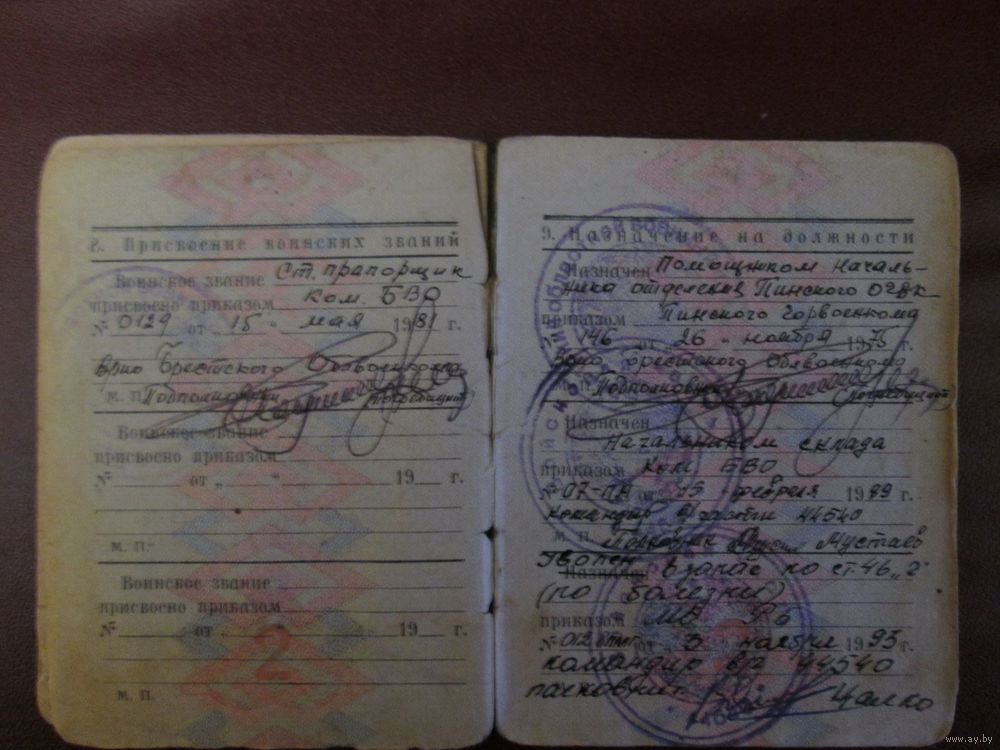 8. Присвоение воинских званий
Воинское звание Ст. прапорщик
присвоено приказом Ком. БВО
№ 0129 от "15" мая 1981 г.
Врио Брестского Облвоенкома
м. п. Подполковник
Воинское звание
присвоено приказом
№ от " " 19 г.
м. п.
Воинское звание
присвоено приказом
№ от " " 19 г.
м. п.
9. Назначение на должности
Назначен Помощником началь-
ника отделения Пинского
приказом Пинского Горвоенкома
№ 146 от 26 ноября 1975 г.
Врио Брестского Облвоенкома
м. п. Подполковник
Назначен
Начальником склада
приказом Ком БВО
№ от февраля г.
командир в/части 44540
м. п. Полковник
Назначен в запас по ст. 46 "г"
(по болезни)
приказом МО РБ
№ от 3 ноября 1993 г.
командир в/ч 44540
полковник Цалко
www.ay.by